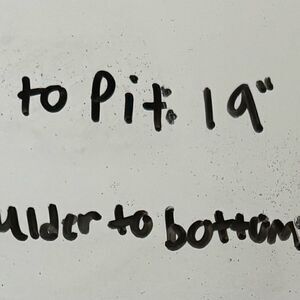 to Pit. 19"
ulder to bottom